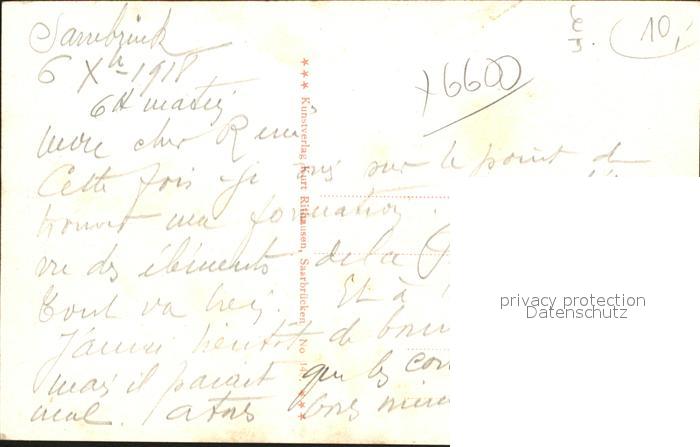 Sarrebrück
6 Xbre 1918
6h matin
mon cher Remi
Cette fois je suis sur le point de
trouver ma formation.
vu des éléments de la
Tout va bien. Et à
J'aurai bientôt de bonn
mais il parait que les con
mal. à tous bons
+6600
10,-
*** Kunstverlag Kurt Rithausen, Saarbrücken, No 14 ***
privacy protection
Datenschutz